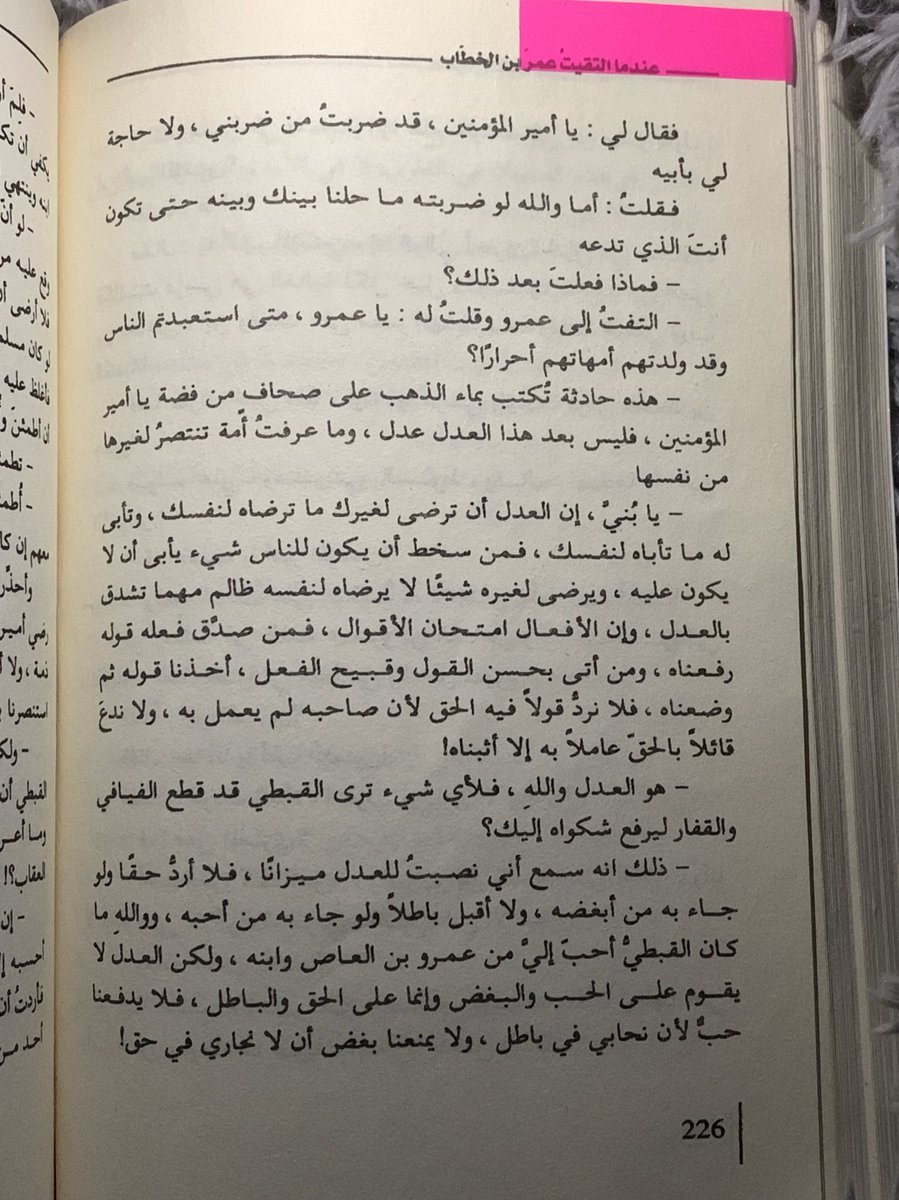 عندما التقيتُ عمرَ بن الخطّاب
فقال لي : يا أمير المؤمنين ، قد ضربتُ من ضربني ، ولا حاجة
لي بأبيه
فقلتُ : أما والله لو ضربته ما حلنا بينك وبينه حتى تكون
أنتَ الذي تدعه
– فماذا فعلتَ بعد ذلك؟
– التفتُ إلى عمرو وقلتُ له : يا عمرو ، متى استعبدتم الناس
وقد ولدتهم أمهاتهم أحرارًا؟
– هذه حادثة تُكتب بماء الذهب على صحاف من فضة يا أمير
المؤمنين ، فليس بعد هذا العدل عدل ، وما عرفتُ أُمة تنتصرُ لغيرها
من نفسها
– يا بُنيَّ ، إن العدل أن ترضى لغيرك ما ترضاه لنفسك ، وتأبى
له ما تأباه لنفسك ، فمن سخط أن يكون للناس شيء يأبى أن لا
يكون عليه ، ويرضى لغيره شيئًا لا يرضاه لنفسه ظالم مهما تشدق
بالعدل ، وإن الأفعال امتحان الأقوال ، فمن صدَّق فعله قوله
رفعناه ، ومن أتى بحسن القول وقبيح الفعل ، أخذنا قوله ثم
وضعناه ، فلا نردُّ قولاً فيه الحق لأن صاحبه لم يعمل به ، ولا ندعَ
قائلاً بالحقّ عاملاً به إلا أثبناه!
– هو العدل واللهِ ، فلأي شيء ترى القبطي قد قطع الفيافي
والقفار ليرفع شكواه إليك؟
– ذلك انه سمع أني نصبتُ للعدل ميزانًا ، فلا أردُّ حقًا ولو
جاء به من أبغضه ، ولا أقبل باطلاً ولو جاء به من أحبه ، وواللهِ ما
كان القبطيُّ أحبّ إليَّ من عمرو بن العاص وابنه ، ولكن العدل لا
يقوم على الحب والبغض وإنما على الحق والباطل ، فلا يدفعنا
حبٌّ لأن نحابي في باطل ، ولا يمنعنا بغض أن لا نجاري في حق!
226